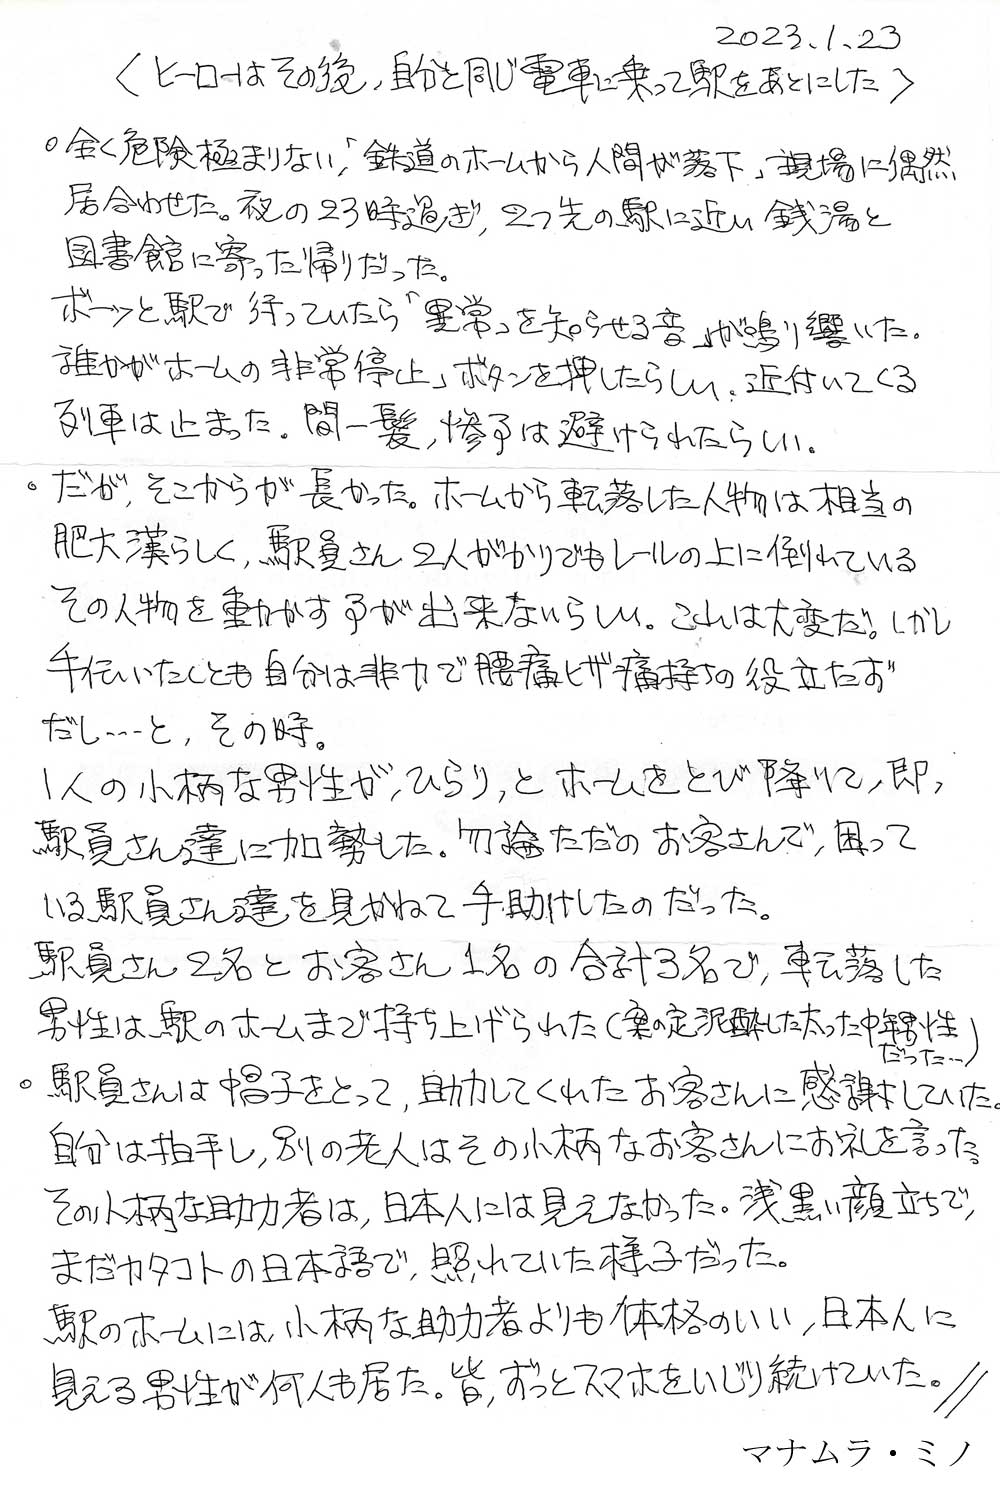 2023.1.23
〈ヒーローはその後、自分と同じ電車に乗って駅をあとにした〉
○全く危険極まりない、「鉄道のホームから人間が落下」現場に偶然
居合わせた。夜の23時過ぎ、2つ先の駅に近い銭湯と
図書館に寄った帰りだった。
ボーッと駅で待っていたら「異常」を知らせる音」が鳴り響いた。
誰かがホームの非常停止」ボタンを押したらしい。近付いてくる
列車は止まった。間一髪、惨事は避けられたらしい。
○だが、そこからが長かった。ホームから転落した人物は相当の
肥大漢らしく、駅員さん2人がかりでもレールの上に倒れている
その人物を動かす事が出来ないらしい。これは大変だ。しかし
手伝いたくとも自分は非力で腰痛ヒザ痛持ちの役立たず
だし…と、その時。
1人の小柄な男性が、ひらり、とホームをとび降りて、即、
駅員さん達に加勢した。勿論ただのお客さんで、困って
いる駅員さん達を見かねて手助けしたのだった。
駅員さん2名とお客さん1名の合計3名で、転落した
男性は駅のホームまで持ち上げられた(案の定泥酔した太った中年男性
だった…)
○駅員さんは帽子をとって、助力してくれたお客さんに感謝していた。
自分は拍手し、別の老人はその小柄なお客さんにお礼を言った。
その小柄な助力者は、日本人には見えなかった。浅黒い顔立ちで、
まだカタコトの日本語で、照れていた様子だった。
駅のホームには、小柄な助力者よりも体格のいい、日本人に
見える男性が何人も居た。皆、ずっとスマホをいじり続けていた。//
マナムラ・ミノ